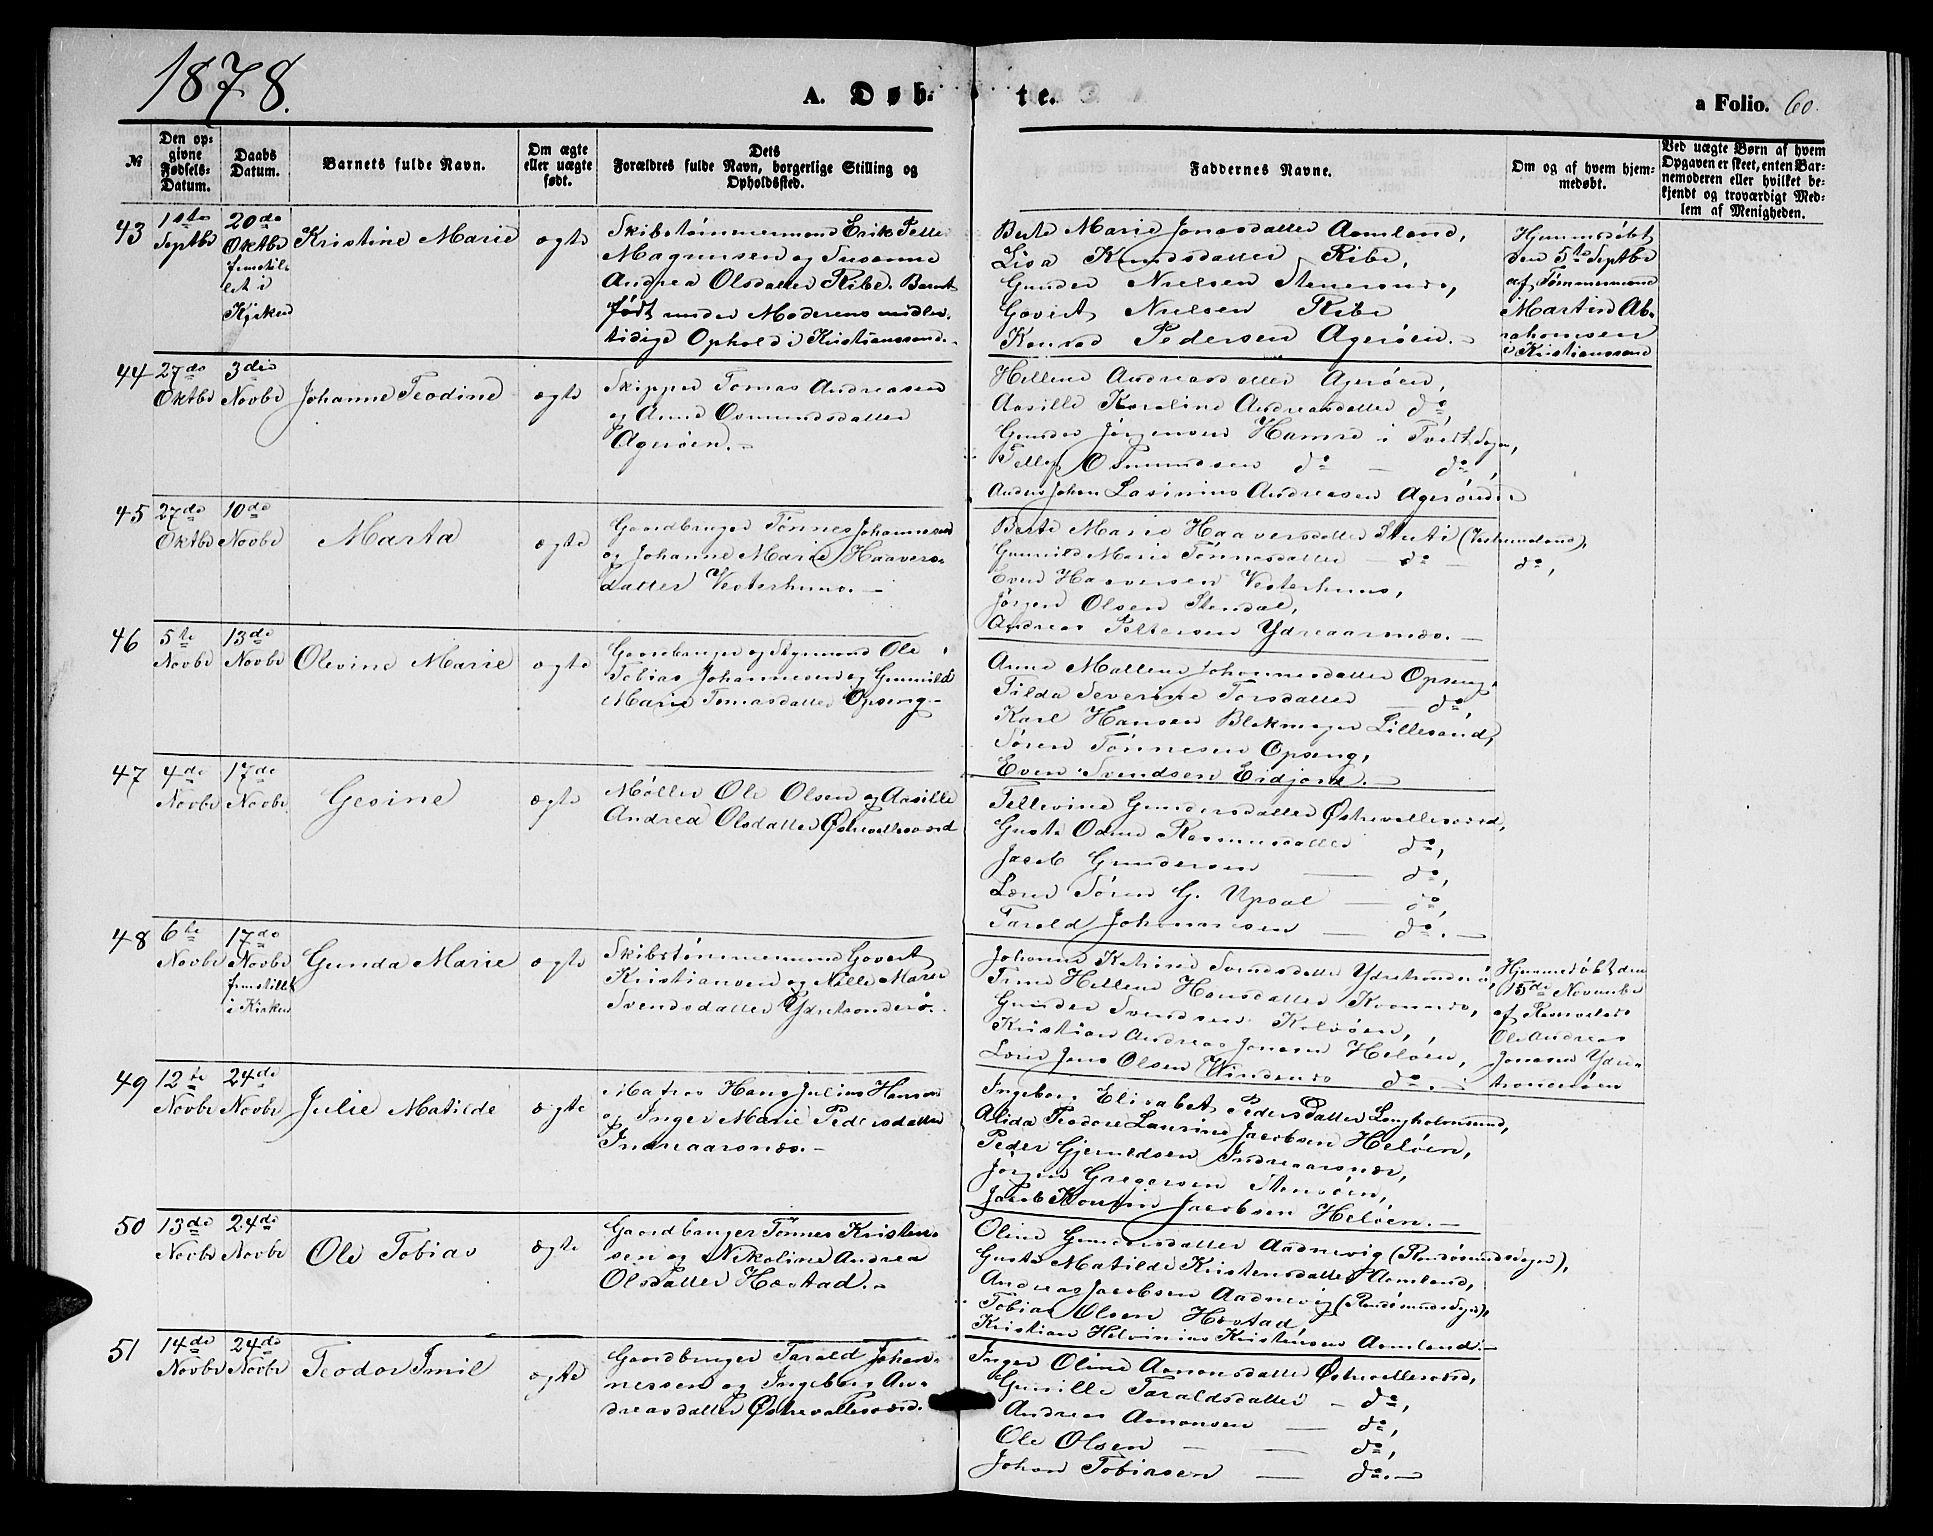 1878.
A. Døb-
te.
a Folio. 60.
№
Den op-
givne
Fødsels-
Datum.
Daabs
Datum.
Barnets fulde Navn.
Om ægte
eller uægte
født.
Dets
Forældres fulde Navn, borgerlige Stilling og
Opholdssted.
Faddernes Navne.
Om og af hvem hjem-
medøbt.
Ved uægte Børn af hvem
Opgaven er skeet, enten Bar-
nemoderen eller hvilket be-
kjendt og troværdigt Med-
lem af Menigheden.
43
1ste
Septbr
20de
Oktbr
fremstil-
let i
Kirken
Kristine Marie
ægte
Skibstømmermand Erik Tellef
Magnusen og Susanne
Andrea Olsdatter Ribe. Barnet
født under Moderens midler-
tidige Ophold i Kristianssand.-
Berte Marie Jonasdatter Aamland,
Lisa Knudsdatter Ribe,
Gunder Nielsen
Govert Nielsen Ribe
Konrad Pedersen Agerøen.-
Hjemmedøbt
den 5te Septbr
af Tømmermand
Martin Ab-
rahamsen
i Kristianssand
44
27de
Oktbr
3die
Novbr
Johanne Teodine
ægte
Skipper Tomas Andreassen
og Anne Osmundsdatter
Agerøen.-
Hellene Andreasdatter Agerøen,
Aasille Karoline Andreasdatter do,
Gunder Jørgensen Hamre i Tveit Sogn,
Tellef Osmundsen do - do,
Anders Johan Andreasen Agerøen.-
45
27de
Oktbr
10de
Novbr
Marta
ægte
Gaardbruger Tønnes Johannesen
og Johanne Marie Haavers-
datter Vesterhuus.-
Berte Marie Haaversdatter (Vestremoland),
Gunild Marie Tønnesdatter - do - do,
Even Haaversen Vesterhuus,
Jørgen Olsen Stendal,
Andreas Pettersen Ydreaarsnæs.-
46
5te
Novbr
13de
Novbr
Olevine Marie
ægte
Gaardbruger og Styrmand Ole
Tobias Johannesen og Gunild
Marie Tomasdatter Opseng.-
Anne Mallene Johannesdatter Opseng,
Tilda Severine Torsdatter - do,
Karl Hansen Blekmager Lillesand,
Søren Tønnesen Opseng,
Even Svendsen Eidjord.-
47
4de
Novbr
17de
Novbr
Gesine
ægte
Møller Ole Olsen og Aasille
Andrea Olsdatter Østrevallesværd
Tellevine Gundersdatter Østrevallesværd,
Guste Odine Rasmusdatter do,
Jacob Gundersen - do,
Lærer Søren G. Upsal - do,
Tarald Johannesen - do.-
48
6te
Novbr
17de
Novbr
fremstillet
i Kirken
Gunda Marie
ægte
Skibstømmermand Govert
Kristiansen og Nille Marie
Svendsdatter Ydretronderø.
Johanne Katrine Svendsdatter Ydretronderø,
Trine Hellene Hansdatter
Gunder Svendsen
Kristian Andreas Jonasen Heløen,
Lærer Jens Olsen do.-
Hjemmedøbt den
15de November
af
Ole Andreas
Jonasen Ydre-
tronderøen
49
12te
Novbr
24de
Novbr
Julie Matilde
ægte
Matros Hans Julius Hansen
og Inger Marie Pedersdatter
Indreaarsnæs.-
Ingeborg Elisabet Pedersdatter Langholmsund,
Alida Teodore Laurine Jacobsen Heløen,
Peder Gjeruldsen Indreaarsnæs,
Jørgen Gregersen Stensøen,
Jacob Jacobsen Heløen.-
50
13de
Novbr
24de
Novbr
Ole Tobias
ægte
Gaardbruger Tønnes Kristen-
sen og Nikoline Andrea
Olsdatter Hæstad.-
Oline Gundersdatter Aadnevig (Randøsundsogn),
Guste Matilde Kristensdatter Aamland,
Andreas Jacobsen Aadnevig (Randøsundsogn),
Tobias Olsen Hæstad,
Kristian Helvinius Kristensen Aamland.-
51
14de
Novbr
24de
Novbr
Teodor Emil
ægte
Gaardbruger Tarald Johan-
nessen og Ingeborg An-
dreasdatter Østrevallesværd.
Inger Oline Aanonsdatter Østrevallesværd,
Gunille Taraldsdatter - do,
Andreas Aanonsen - do,
Ole Olsen - - do,
Johan Tobiasen - do.-